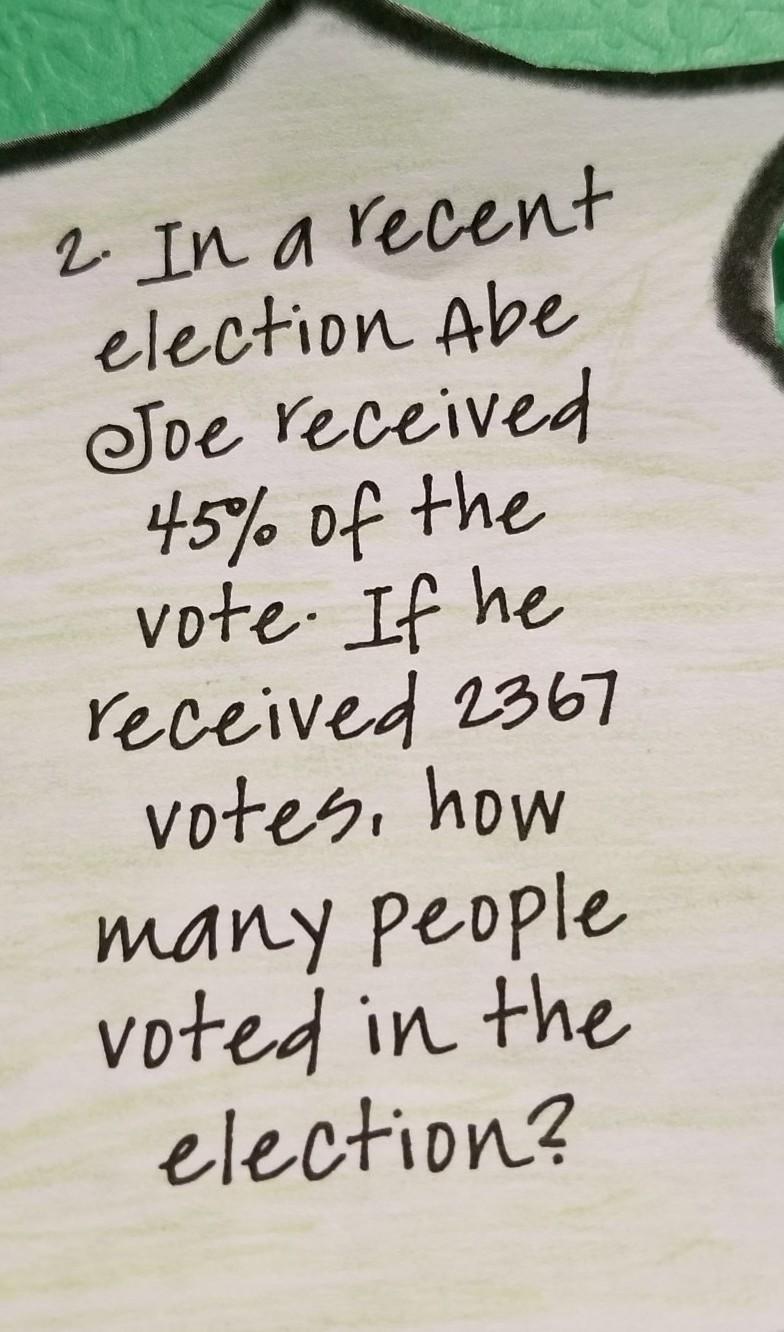 2. In a recent
election Abe
Joe received
45% of the
vote. If he
received 2367
votes, how
many people
voted in the
election?